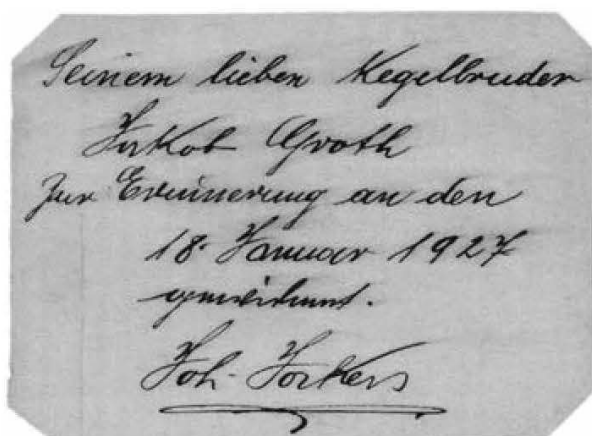 Seinem lieben Kegelbruder
Jakob Groth
Zur Erinnerung an den
18. Januar 1927
gewidmet.
Joh. Jockers